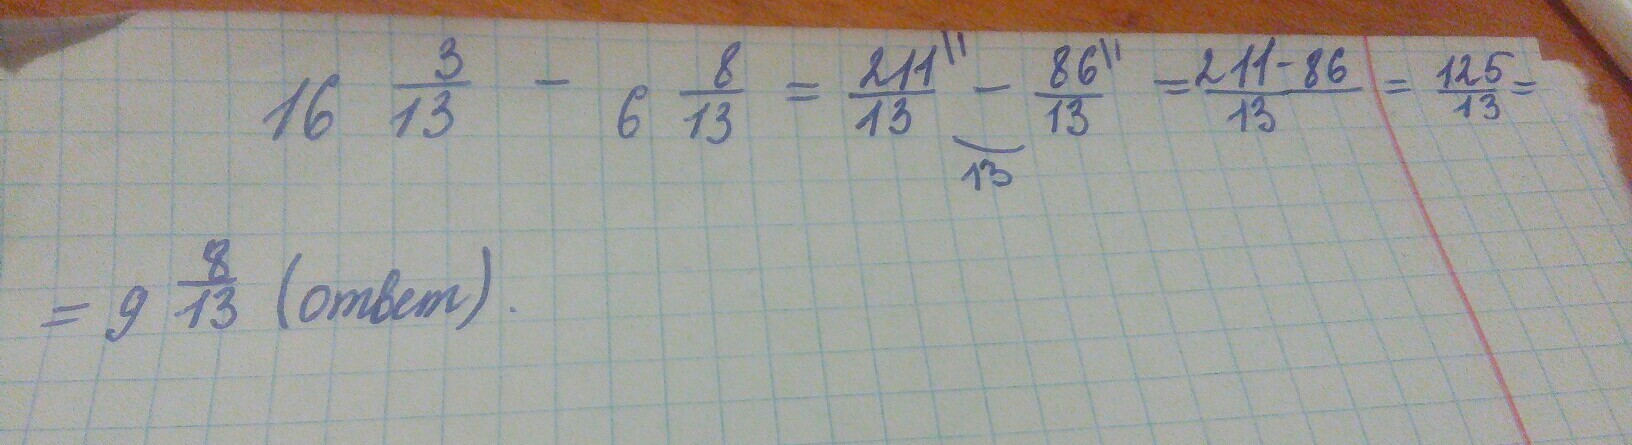 16 3/13 - 6 8/13 = 211\\/13 - 86\\/13 = 211-86/13 = 125/13 =
13
= 9 8/13 (ответ).